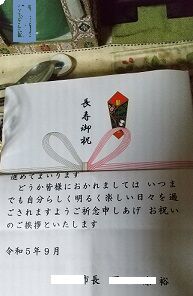 長寿御祝
進めてまいります
どうか皆様におかれましては いつま
でも自分らしく明るく楽しい日々を過
ごされますようご祈念申しあげ お祝い
のご挨拶といたします
令和5年9月
市長
裕